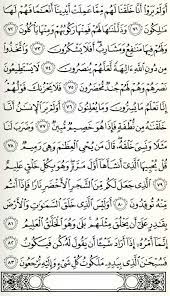 أَوَلَمْ يَرَوْا أَنَّا خَلَقْنَا لَهُم مِّمَّا عَمِلَتْ أَيْدِينَا أَنْعَامًا فَهُمْ لَهَا
مَالِكُونَ ٧١ وَذَلَّلْنَاهَا لَهُمْ فَمِنْهَا رَكُوبُهُمْ وَمِنْهَا يَأْكُلُونَ ٧٢
وَلَهُمْ فِيهَا مَنَافِعُ وَمَشَارِبُ أَفَلَا يَشْكُرُونَ ٧٣ وَاتَّخَذُوا
مِن دُونِ اللَّهِ آلِهَةً لَّعَلَّهُمْ يُنصَرُونَ ٧٤ لَا يَسْتَطِيعُونَ
نَصْرَهُمْ وَهُمْ لَهُمْ جُندٌ مُّحْضَرُونَ ٧٥ فَلَا يَحْزُنكَ قَوْلُهُمْ
إِنَّا نَعْلَمُ مَا يُسِرُّونَ وَمَا يُعْلِنُونَ ٧٦ أَوَلَمْ يَرَ الْإِنسَانُ أَنَّا
خَلَقْنَاهُ مِن نُّطْفَةٍ فَإِذَا هُوَ خَصِيمٌ مُّبِينٌ ٧٧ وَضَرَبَ لَنَا
مَثَلًا وَنَسِيَ خَلْقَهُ قَالَ مَن يُحْيِ الْعِظَامَ وَهِيَ رَمِيمٌ ٧٨
قُلْ يُحْيِيهَا الَّذِي أَنشَأَهَا أَوَّلَ مَرَّةٍ وَهُوَ بِكُلِّ خَلْقٍ عَلِيمٌ
٧٩ الَّذِي جَعَلَ لَكُم مِّنَ الشَّجَرِ الْأَخْضَرِ نَارًا فَإِذَا أَنتُم
مِّنْهُ تُوقِدُونَ ٨٠ أَوَلَيْسَ الَّذِي خَلَقَ السَّمَاوَاتِ وَالْأَرْضَ
بِقَادِرٍ عَلَىٰ أَن يَخْلُقَ مِثْلَهُم بَلَىٰ وَهُوَ الْخَلَّاقُ الْعَلِيمُ ٨١
إِنَّمَا أَمْرُهُ إِذَا أَرَادَ شَيْئًا أَن يَقُولَ لَهُ كُن فَيَكُونُ ٨٢
فَسُبْحَانَ الَّذِي بِيَدِهِ مَلَكُوتُ كُلِّ شَيْءٍ وَإِلَيْهِ تُرْجَعُونَ ٨٣